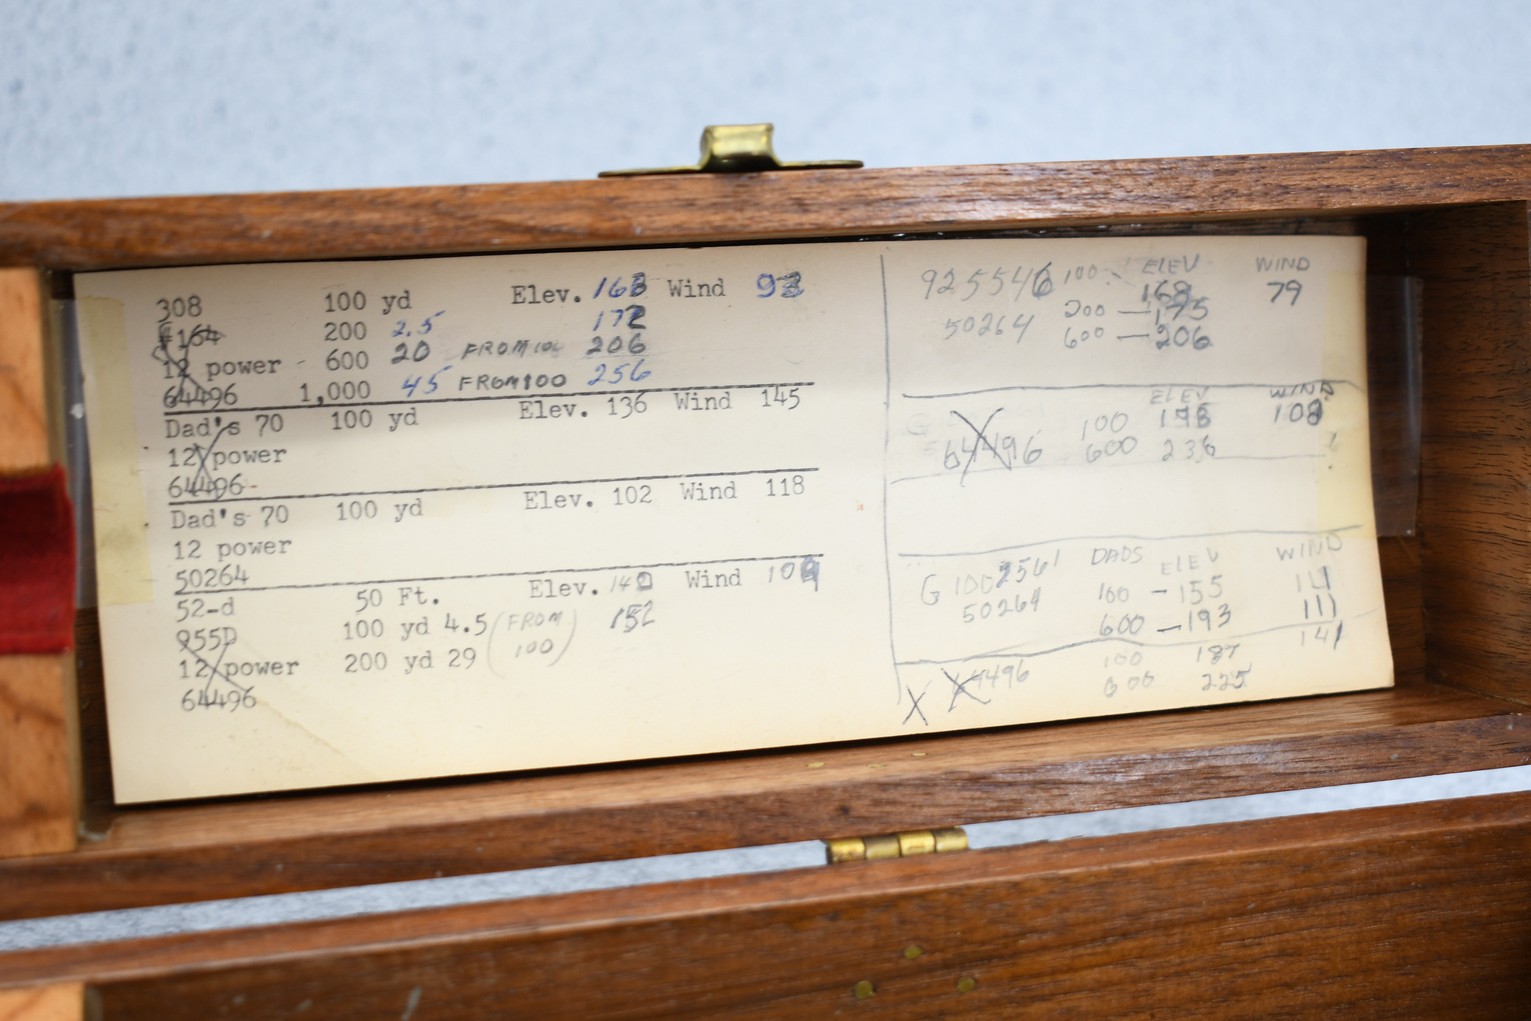 308 100 yd Elev. 168 Wind 93
#164 200 2.5 172
12 power 600 20 FROM 100 206
64496 1,000 45 FROM 100 256
Dad's 70 100 yd Elev. 136 Wind 145
12 power
64496
Dad's 70 100 yd Elev. 102 Wind 118
12 power
50264
52-d 50 Ft. Elev. 140 Wind 109
955D 100 yd 4.5 (FROM 100) 152
12 power 200 yd 29
64496
ELEV WIND
925546 100 168 79
50264 200 — 175
600 — 206
ELEV WIND
100 198 108
64496 600 236
DADS ELEV WIND
G 1002561 100 - 155 111
50264 600 — 193 111
100 187 141
X 64496 600 225